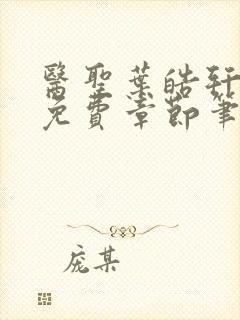 醫聖葉皓軒
免費章節筆
庞某